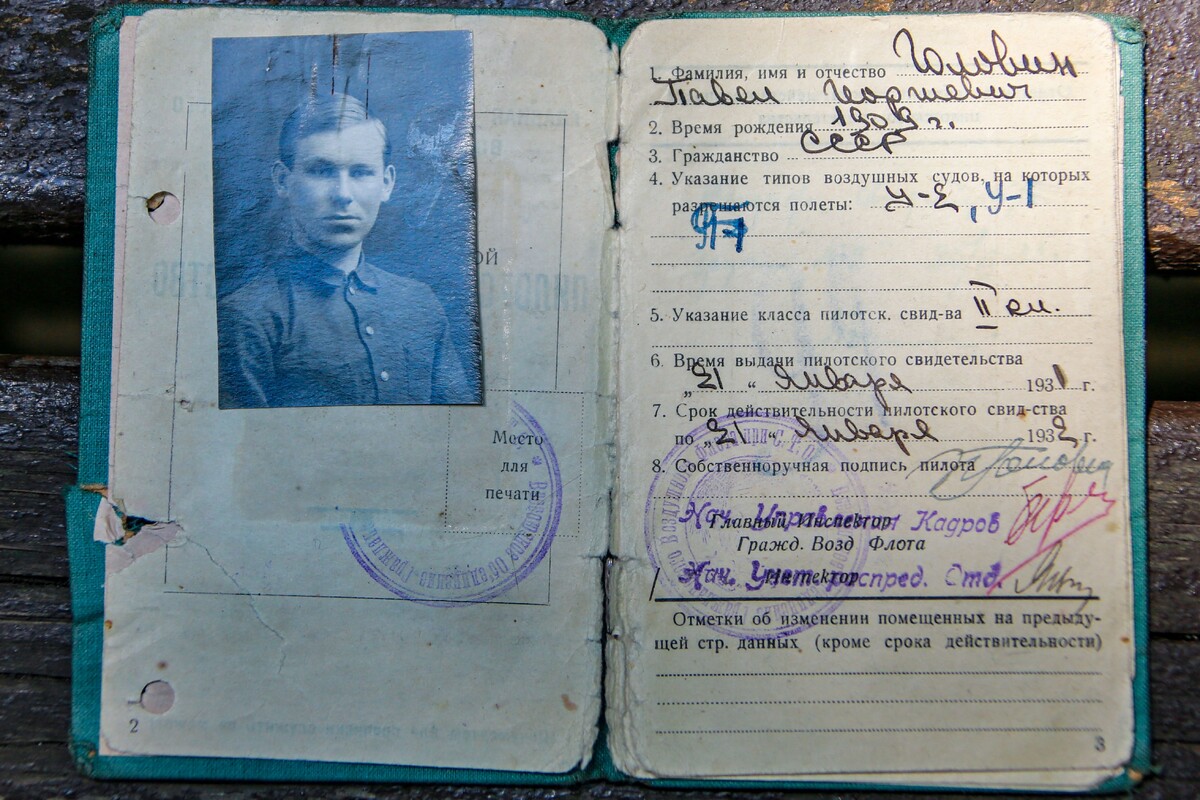 ой
Место
для
печати
2
1. Фамилия, имя и отчество Головин
Павел Георгиевич
2. Время рождения 1909 г.
3. Гражданство СССР
4. Указание типов воздушных судов, на которых
разрешаются полеты: У-2, У-1
5. Указание класса пилотск. свид-ва II кл.
6. Время выдачи пилотского свидетельства
„21“ Января 1931 г.
7. Срок действительности пилотского свид-ства
по „21“ Января 1932 г.
8. Собственноручная подпись пилота
Нач. Управления Кадров
Главный Инспектор
Гражд. Возд Флота
Нач. Учет. распред. Отд.
Инспектор
Отметки об изменении помещенных на предыду-
щей стр. данных (кроме срока действительности)
3